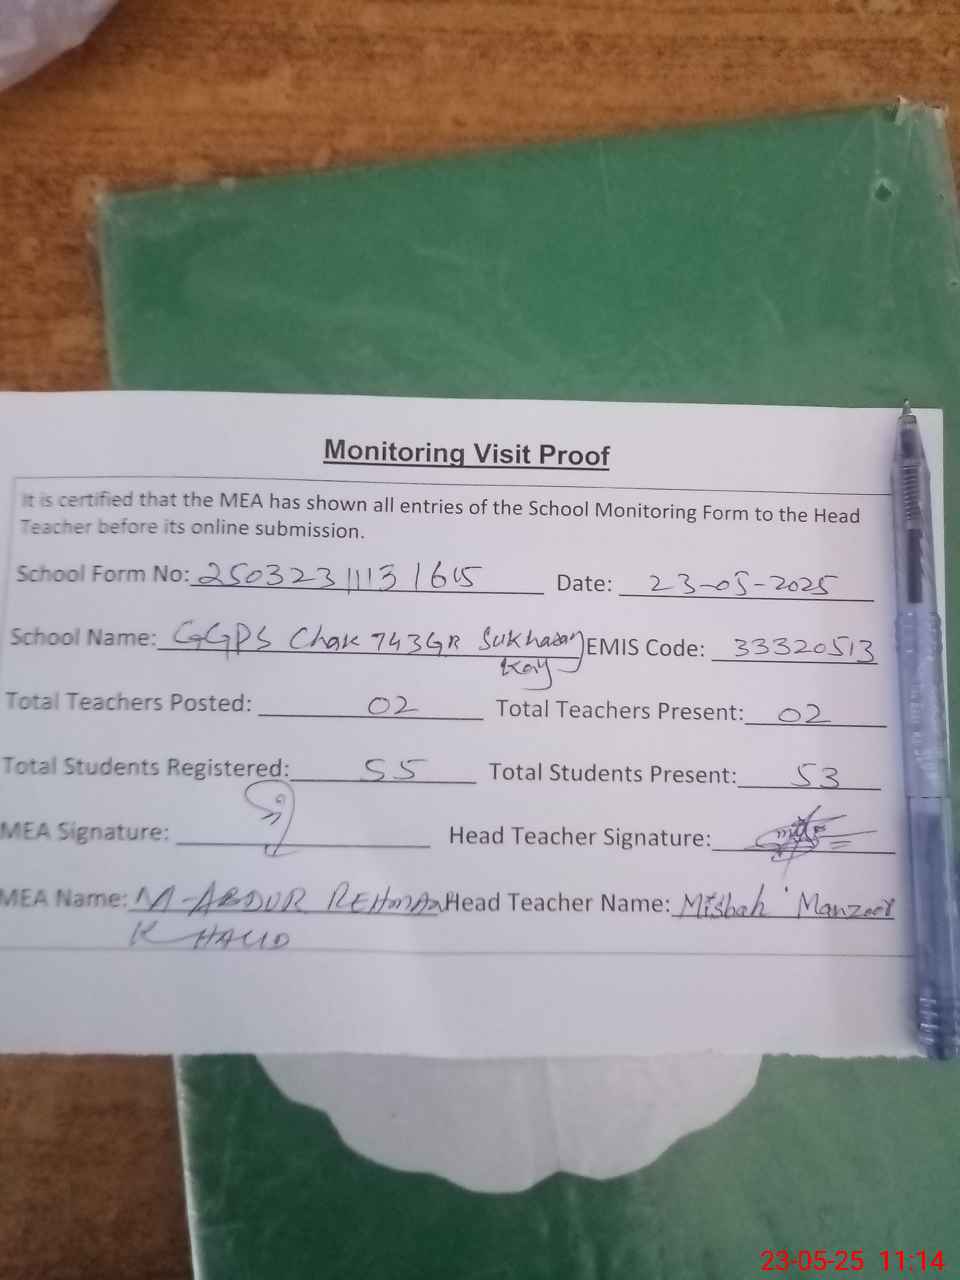 Monitoring Visit Proof
It is certified that the MEA has shown all entries of the School Monitoring Form to the Head
Teacher before its online submission.
School Form No: 25032311131615 Date: 23-05-2025
School Name: GGPS Chak 743GR Sukhasan EMIS Code: 33320513
Kay
Total Teachers Posted: 02 Total Teachers Present: 02
Total Students Registered: 55 Total Students Present: 53
MEA Signature: Head Teacher Signature:
MEA Name: M-ABDUR REHMAN Head Teacher Name: Misbah Manzoor
KHALID
23-05-25 11:14